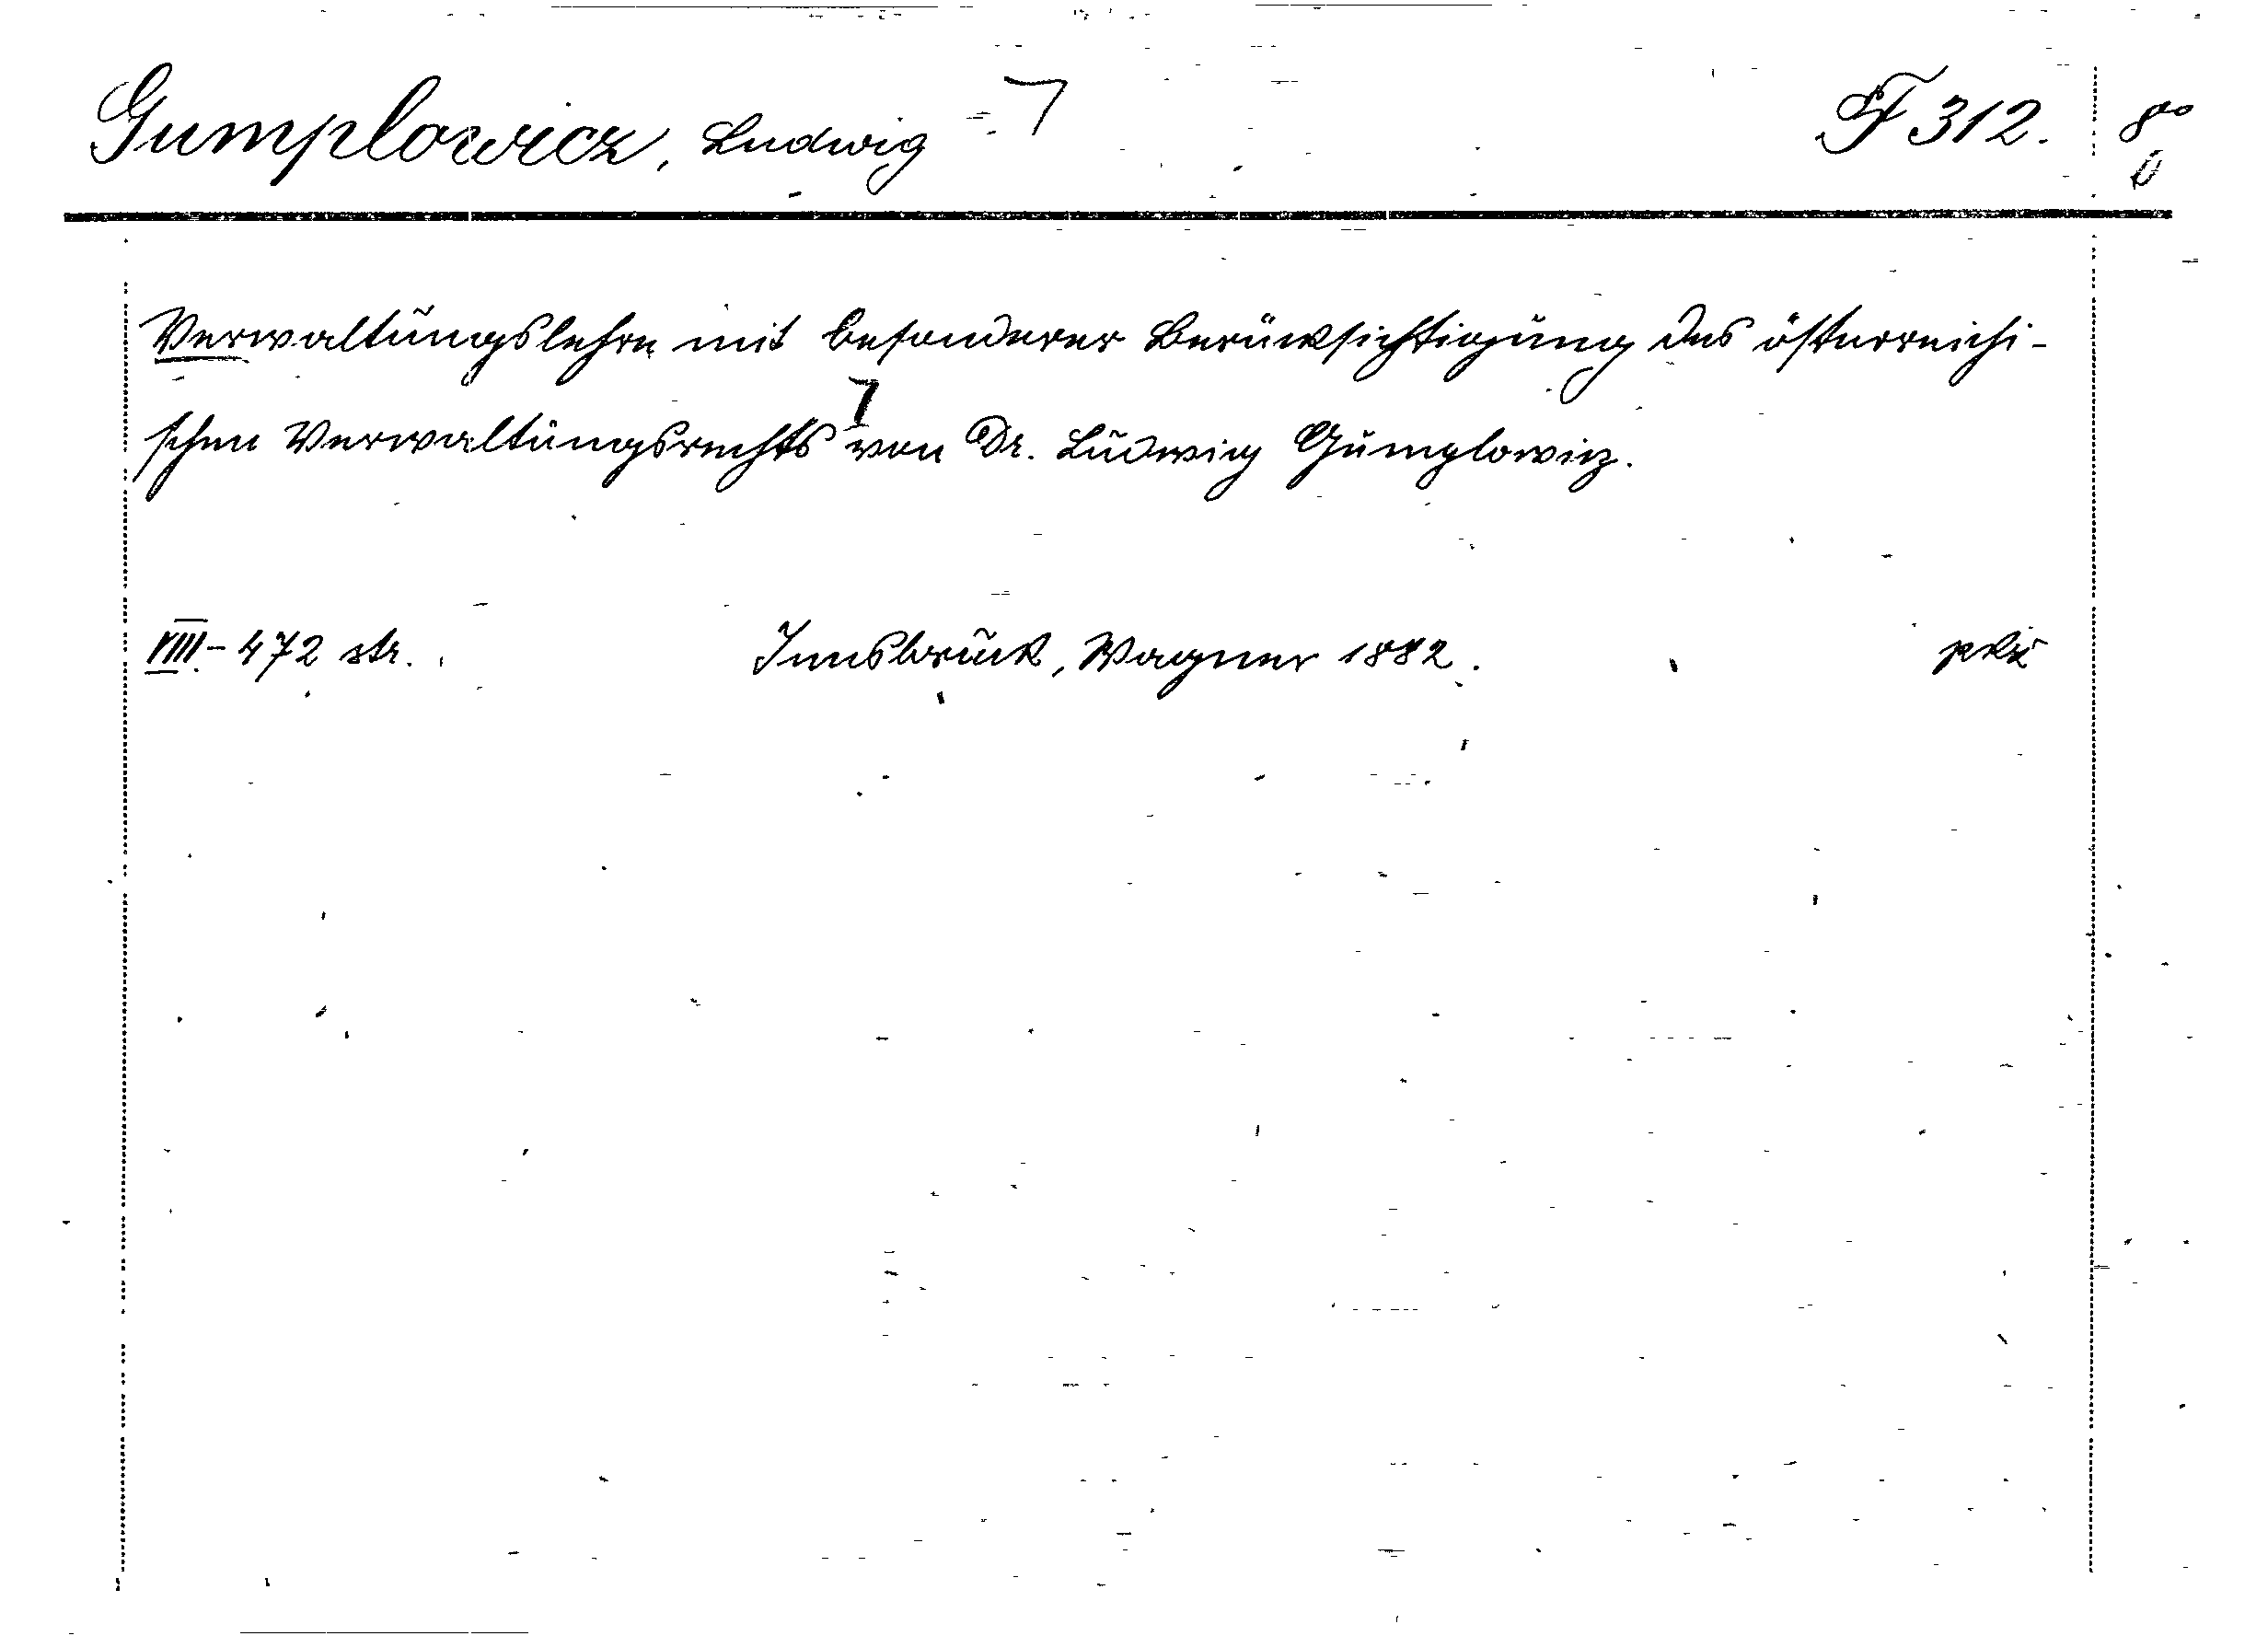 Gumplowicz, Ludwig ㄱ F 312. 8⁰
Verwaltungslehre mit besonderer Berücksichtigung des österreichi-
schen Verwaltungsrechts von Dr. Ludwig Gumplowicz.
VIII - 472 str. Innsbruck, Wagner 1882.